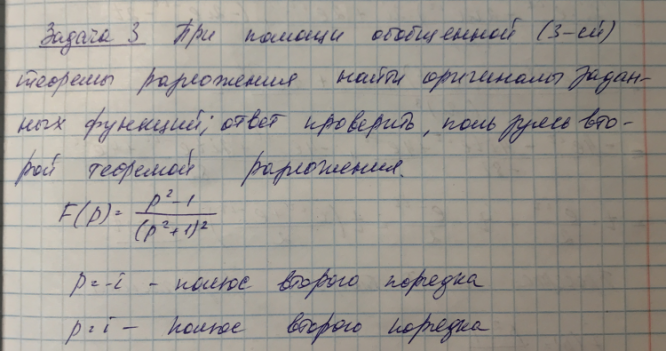 Задача 3 При помощи обобщенной (3-ей)
теоремы разложения найти оригиналы задан-
ных функций; ответ проверить, пользуясь вто-
рой теоремой разложения.
F(p) = \frac{p^2-1}{(p^2+1)^2}
p=-i - полюс второго порядка
p=i - полюс второго порядка